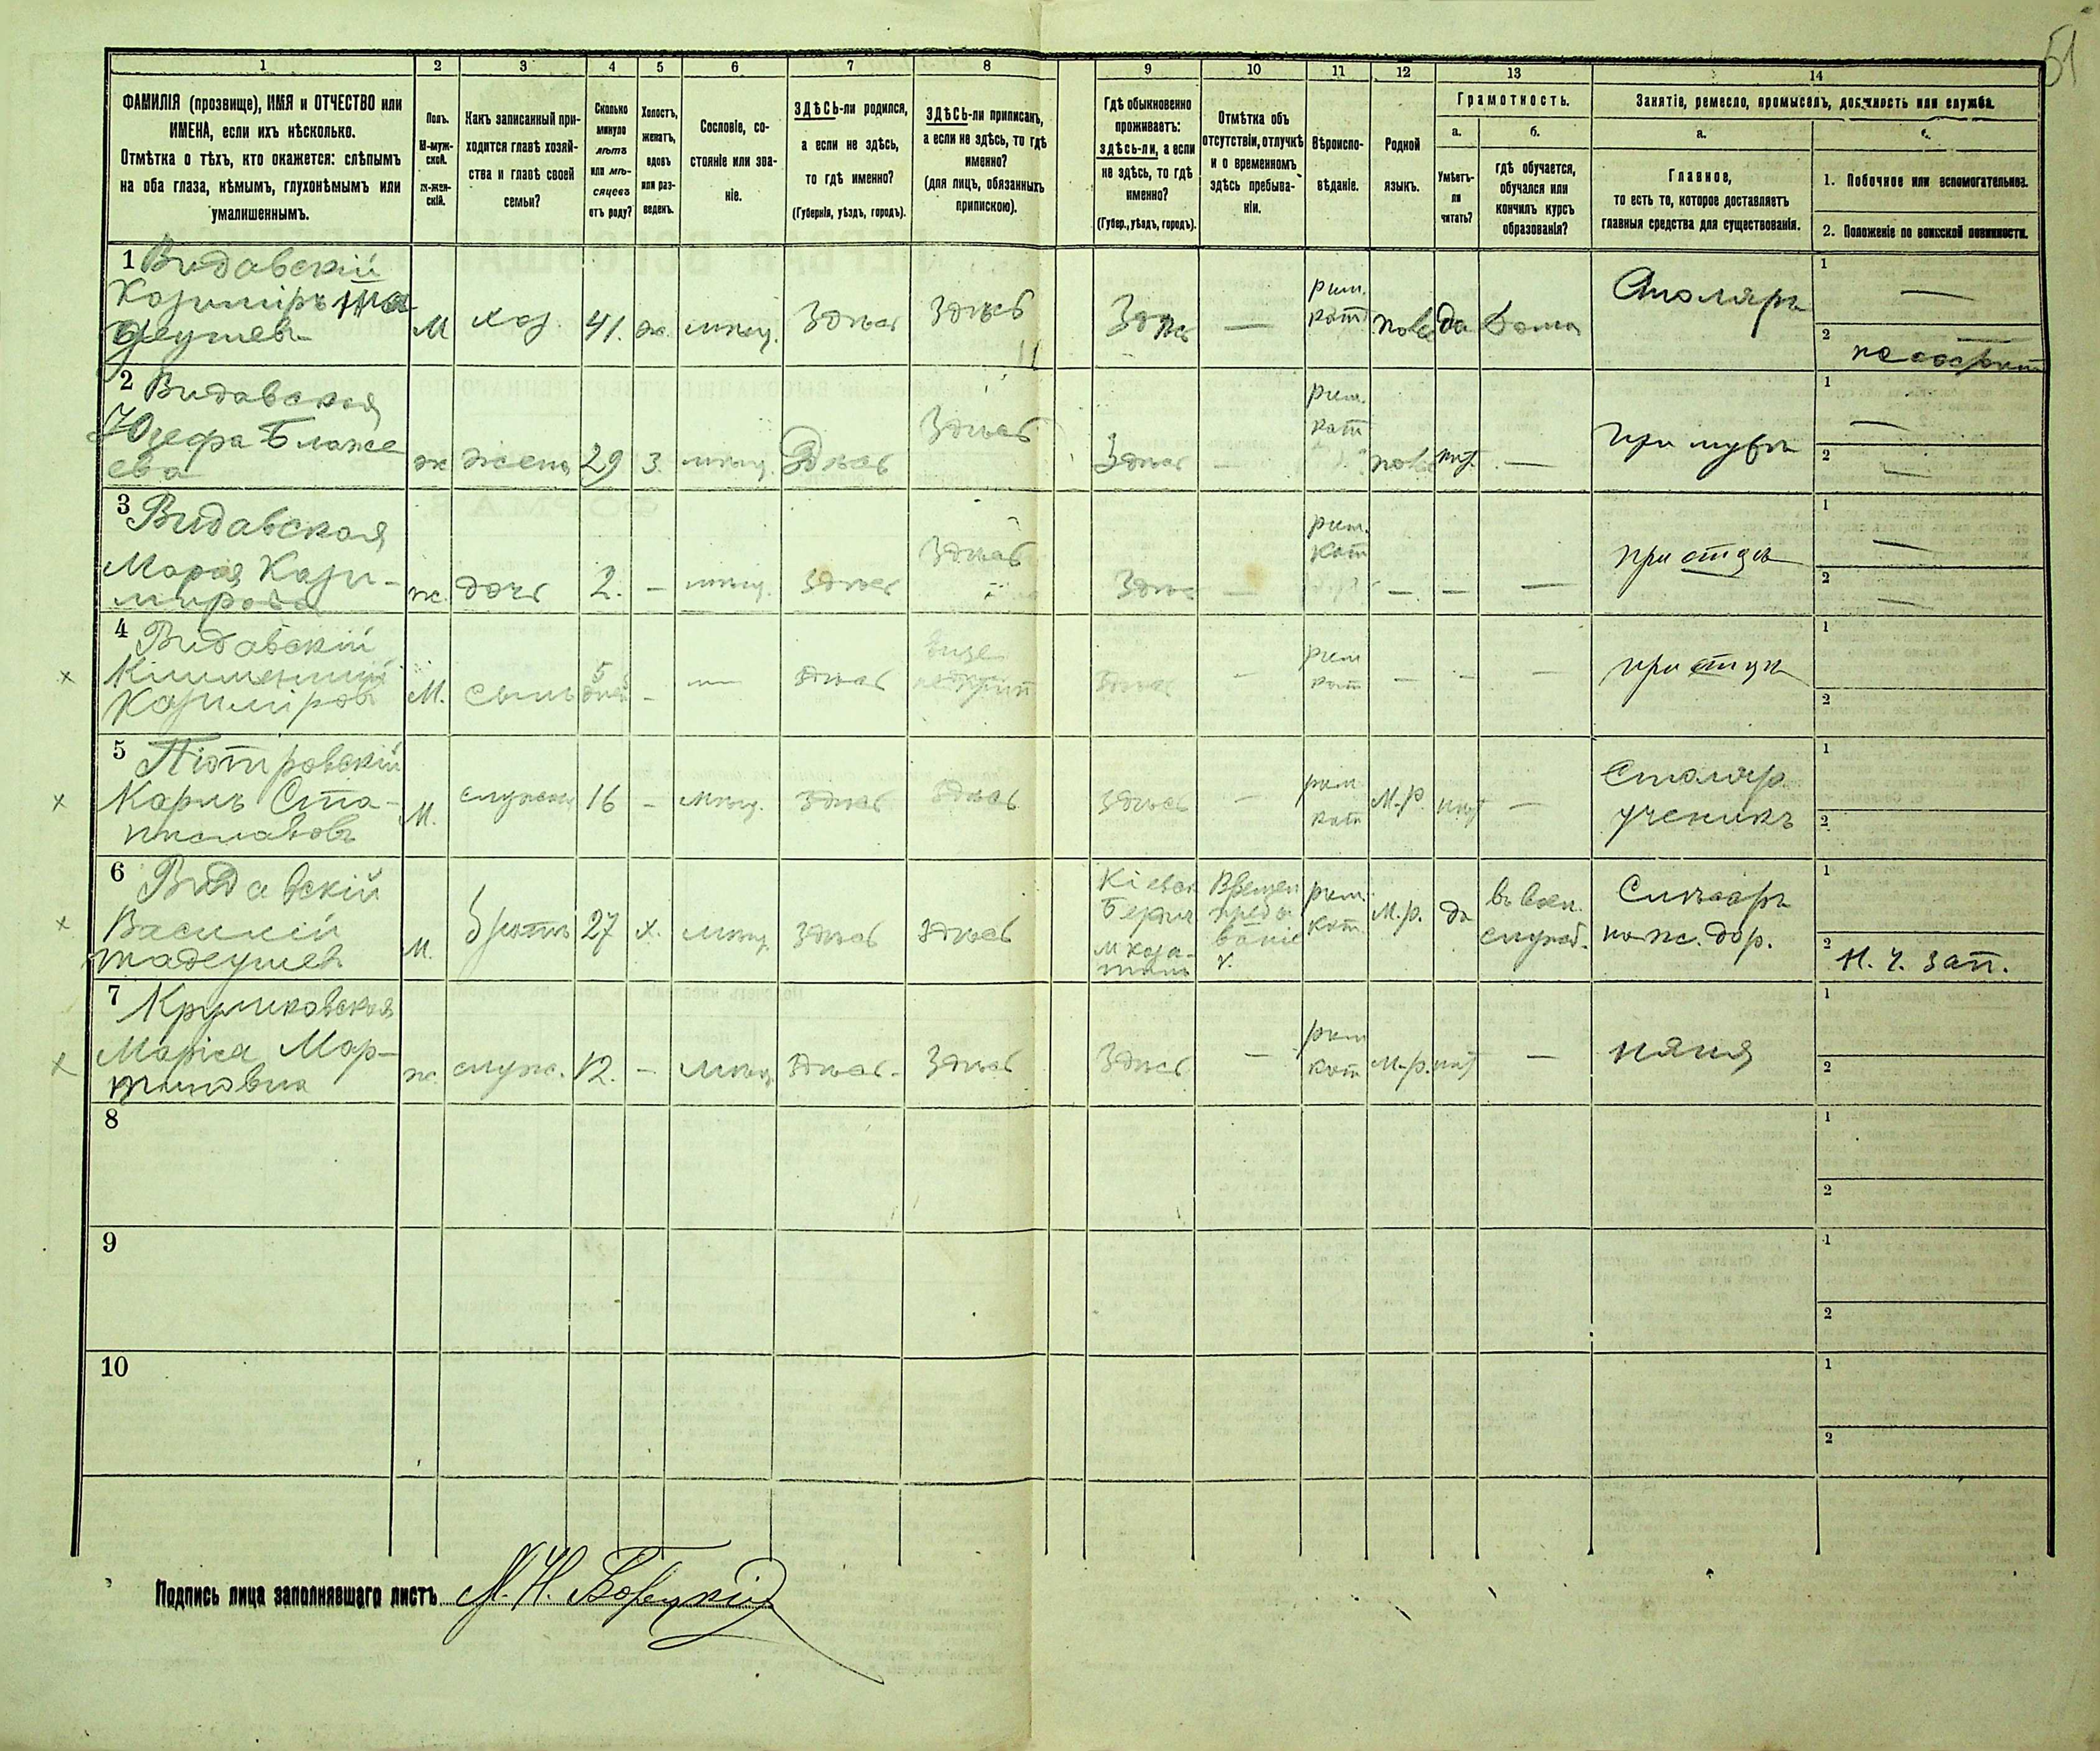 51
1 2 3 4 5 6 7 8 9 10 11 12 13 14
ФАМИЛІЯ (прозвище), ИМЯ и ОТЧЕСТВО или
ИМЕНА, если ихъ нѣсколько.
Отмѣтка о тѣхъ, кто окажется: слѣпымъ
на оба глаза, нѣмымъ, глухонѣмымъ или
умалишеннымъ.
Полъ.
М-муж-
ской.
ж-жен-
скій.
Какъ записанный при-
ходится главѣ хозяй-
ства и главѣ своей
семьи?
Сколько
минуло
лѣтъ
или мѣ-
сяцевъ
отъ роду?
Холостъ,
женатъ,
вдовъ
или раз-
веденъ.
Сословіе, со-
стояніе или зва-
ніе.
ЗДѢСЬ-ли родился,
а если не здѣсь,
то гдѣ именно?
(Губернія, уѣздъ, городъ).
ЗДѢСЬ-ли приписанъ,
а если не здѣсь, то гдѣ
именно?
(для лицъ, обязанныхъ
припискою).
Гдѣ обыкновенно
проживаетъ:
здѣсь-ли, а если
не здѣсь, то гдѣ
именно?
(Губер., уѣздъ, городъ).
Отмѣтка объ
отсутствіи, отлучкѣ
и о временномъ
здѣсь пребыва-
ніи.
Вѣроиспо-
вѣданіе.
Родной
языкъ.
Грамотность.
а.
Умѣетъ-
ли
читать?
б.
гдѣ обучается,
обучался или
кончилъ курсъ
образованія?
Занятіе, ремесло, промыселъ, должность или служба.
а.
Главное,
то есть то, которое доставляетъ
главныя средства для существованія.
1. Побочное или вспомогательное.
2. Положеніе по воинской повинности.
1 Видавскій
Казиміръ Та
деушев
М хоз. 41. ж. мѣщ. Здѣсь Здѣсь Здѣсь — рим. кат. да дома Столяръ
1 —
2
2 Видавская
Юзефа Блаже
ева
ж жена 29 З. мѣщ. Здѣсь Здѣсь Здѣсь — рим. кат нѣт. — при мужѣ
1 —
2 —
3 Видавская
Марія Кази-
мирова
ж. дочь 2. — мѣщ. Здѣсь Здѣсь Здѣсь — рим. кат — — — при отцѣ
1 —
2 —
4 Видавскій
Казиміров
М. сынъ 5 дней - — здѣсь еще Здѣсь — рим кат — - — при отцѣ
1
2
5 Піотровскій
Карлъ Ста-
ниславовъ
М. 16 - мѣщ. здѣсь здѣсь здѣсь — рим кат М.р. нѣт — Столяр.
ученикъ
1
2
6 Видавскій
Василій
тадеушев
М. братъ 27 х. мѣщ. здѣсь здѣсь Кіевск рим. кат. М.р. да въ воен.
служб. Слесарь
на ж. дор.
1
2 Н. ч. зап.
7 Крушковская
Маріса Мар-
тиновна
ж. служ. 12. - мѣщ. здѣсь - Здѣсь Здѣсь — рим кат М-р. нѣт — няня
1
2
8
1
2
9
1
2
10
1
2
Подпись лица заполнявшаго листъ